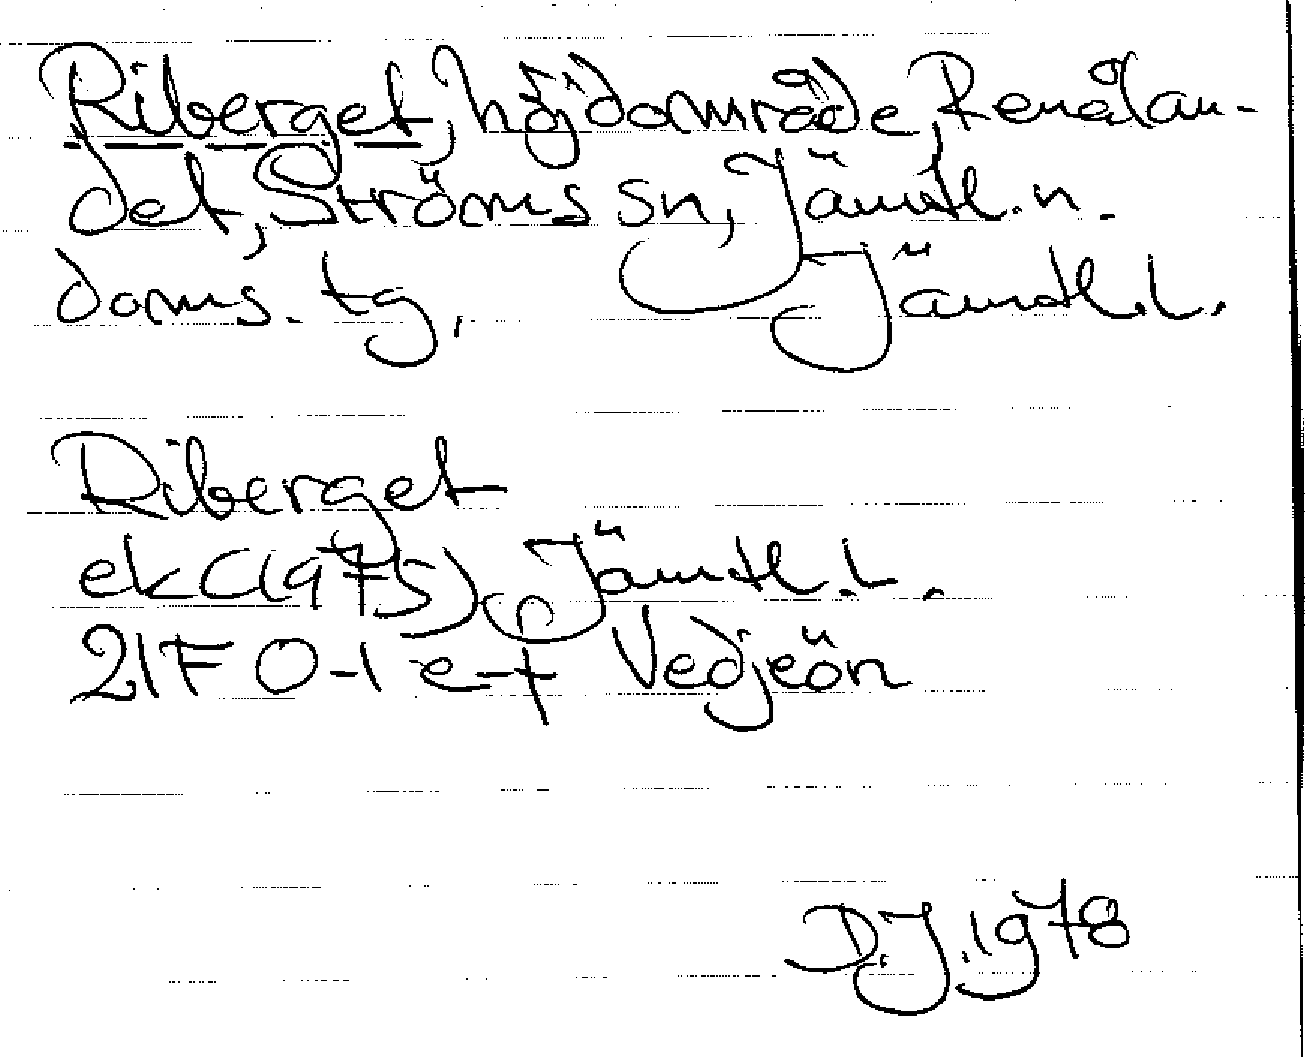 Riberget, höjdområde, Renålan-
det, Ströms sn, Jämtl. n.
doms. tg, Jämtl. L.
Riberget
ek (1975), Jämtl. L.
21F 0-1 e-f Vedjeön
D.J. 1978